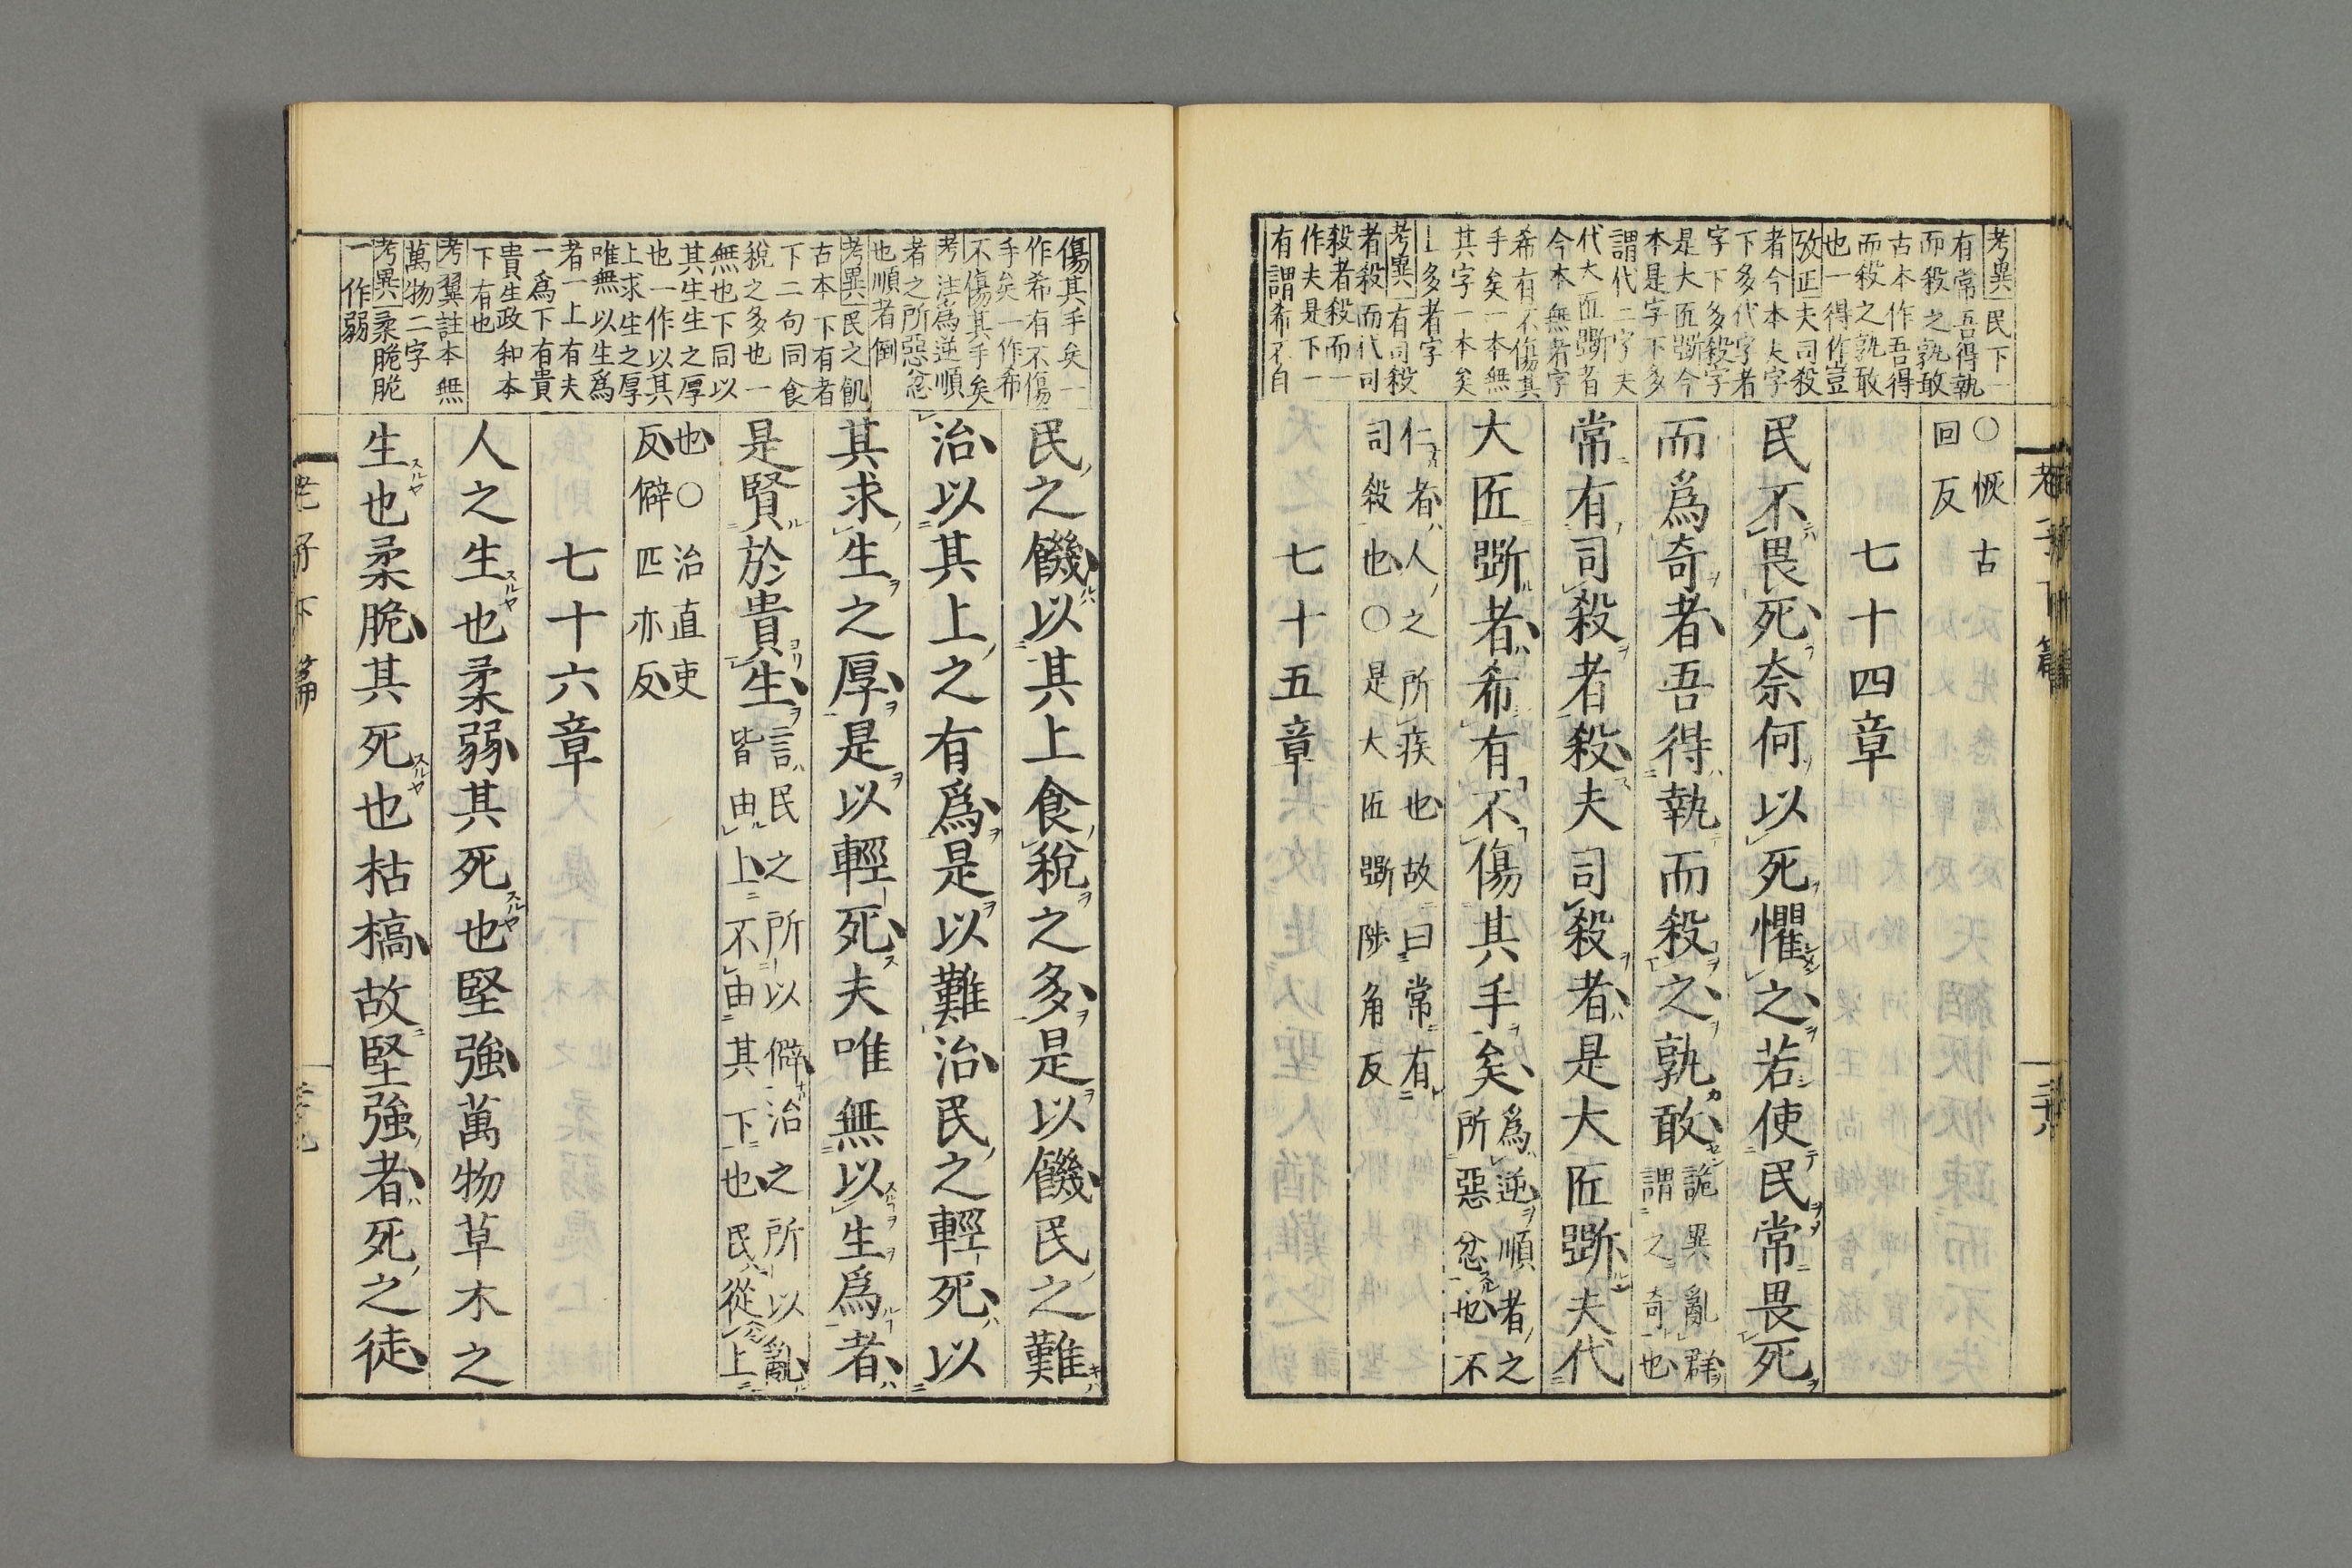 考異民下一
有常吾得執
而殺之孰敢
古本作吾得
而殺之孰敢
也一得作豈
攷正夫司殺
者今本夫字
下多代字者
字下多殺字
是大匠斲今
本是字下多
謂代二字夫
代大匠斲者
今本無者字
希有不傷其
手矣一本無
其字一本矣
上多者字
考異有司殺
者殺而代司
殺者殺而一
作夫是下一
有謂希不自
○恢古
回反
七十四章
民不畏死奈何以死懼之若使民常畏死
而爲奇者吾得執而殺之孰敢詭異亂群
謂之奇也
常有司殺者殺夫司殺者是大匠斲夫代
大匠斲者希有不傷其手矣爲逆順者之
所惡忿也不
仁者人之所疾也故曰常有
司殺也○是大匠斲陟角反
七十五章
老子下篇
三十八
傷其手矣一
作希有不傷
手矣一作希
不傷其手矣
考注爲逆順
者之所惡忿
也順者倒
考異民之飢
古本下有者
下二句同食
稅之多也一
無也下同以
其生生之厚
也一作以其
上求生之厚
唯無以生爲
者一上有夫
一爲下有貴
貴生政和本
下有也
考翼註本無
萬物二字
考異柔脆脆
一作弱
民之饑以其上食稅之多是以饑民之難
治以其上之有爲是以難治民之輕死以
其求生之厚是以輕死夫唯無以生爲者
是賢於貴生言民之所以僻治之所以亂
皆由上不由其下也民從上
也○治直吏
反僻匹亦反
七十六章
人之生也柔弱其死也堅強萬物草木之
生也柔脆其死也枯槁故堅強者死之徒
老子下篇